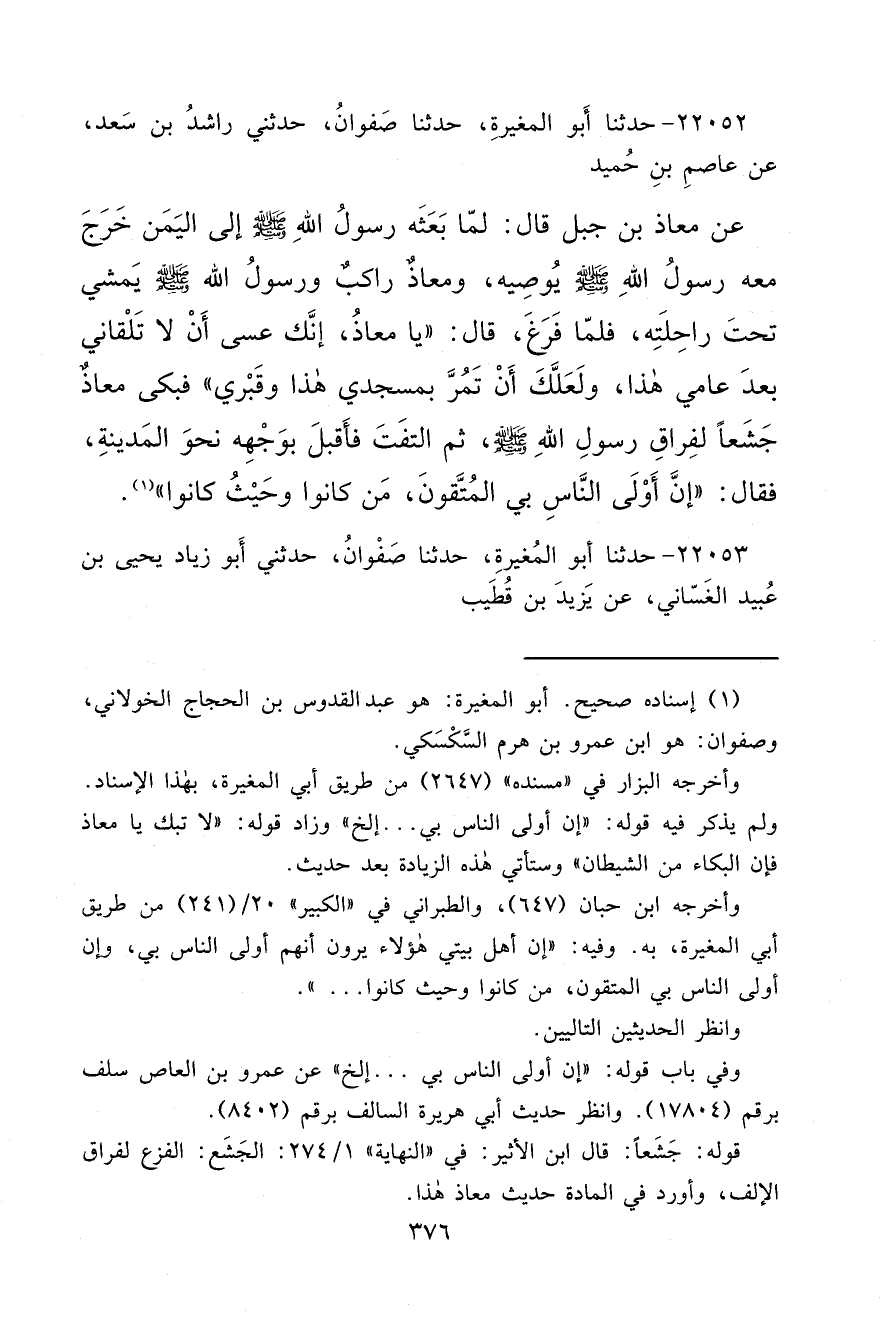 ٢٢٠٥٢- حدثنا أَبو المغيرةِ، حدثنا صَفوانُ، حدثني راشدُ بن سَعد،
عن عاصمِ بنِ حُميد
عن معاذ بن جبل قال: لمّا بَعَثَه رسولُ اللهِ ﷺ إلى اليَمَن خَرَجَ
معه رسولُ اللهِ ﷺ يُوصِيه، ومعاذٌ راكبٌ ورسولُ الله ﷺ يَمشي
تحتَ راحِلَتِه، فلمّا فَرَغَ، قال: «يا معاذُ، إنَّك عسى أَنْ لا تَلْقاني
بعدَ عامي هٰذا، ولَعَلَّكَ أَنْ تَمُرَّ بمسجدي هٰذا وقَبْري» فبكى معاذٌ
جَشَعاً لفِراقِ رسولِ اللهِ ﷺ، ثم التفَتَ فأَقبلَ بوَجْهِه نحوَ المَدينةِ،
فقال: «إنَّ أَوْلَى النَّاسِ بي المُتَّقونَ، مَن كانوا وحَيْثُ كانوا»(١).
٢٢٠٥٣- حدثنا أبو المُغيرةِ، حدثنا صَفْوانُ، حدثني أَبو زياد يحيى بن
عُبيد الغَسّاني، عن يَزيدَ بن قُطَيب
(١) إسناده صحيح. أبو المغيرة: هو عبدالقدوس بن الحجاج الخولاني،
وصفوان: هو ابن عمرو بن هرم السَّكْسَكي.
وأخرجه البزار في «مسنده» (٢٦٤٧) من طريق أبي المغيرة، بهٰذا الإسناد.
ولم يذكر فيه قوله: «إن أولى الناس بي...إلخ» وزاد قوله: «لا تبك يا معاذ
فإن البكاء من الشيطان» وستأتي هٰذه الزيادة بعد حديث.
وأخرجه ابن حبان (٦٤٧)، والطبراني في «الكبير» ٢٠/(٢٤١) من طريق
أبي المغيرة، به. وفيه: «إن أهل بيتي هٰؤلاء يرون أنهم أولى الناس بي، وإن
أولى الناس بي المتقون، من كانوا وحيث كانوا... ».
وانظر الحديثين التاليين.
وفي باب قوله: «إن أولى الناس بي ...إلخ» عن عمرو بن العاص سلف
برقم (١٧٨٠٤). وانظر حديث أبي هريرة السالف برقم (٨٤٠٢).
قوله: جَشَعاً: قال ابن الأثير: في «النهاية» ٢٧٤/١: الجَشَع: الفزع لفراق
الإلف، وأورد في المادة حديث معاذ هٰذا.
٣٧٦